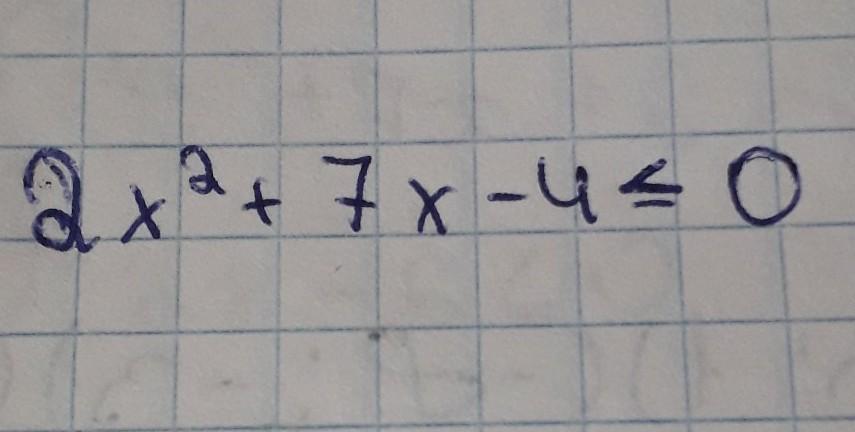 2x² + 7x - 4 ≤ 0